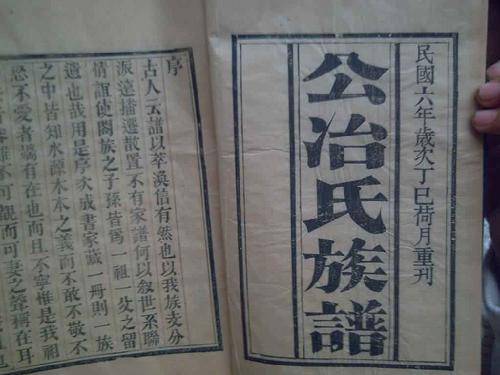 民國六年歲次丁巳荷月重刊
公冶氏族譜
序
古人云譜以萃渙信有然也以我族支分
派遠播遷散置不有家譜何以叙世系聯
情誼使闔族之子孫皆爲一祖一父之留
遺也哉用是序次成書家藏一冊則一族
之中皆知水源木本之義而不敢不敬不
恐不愛者端有在也而且不寧惟是我祖
雖不可觀而可妻之聲稱在耳